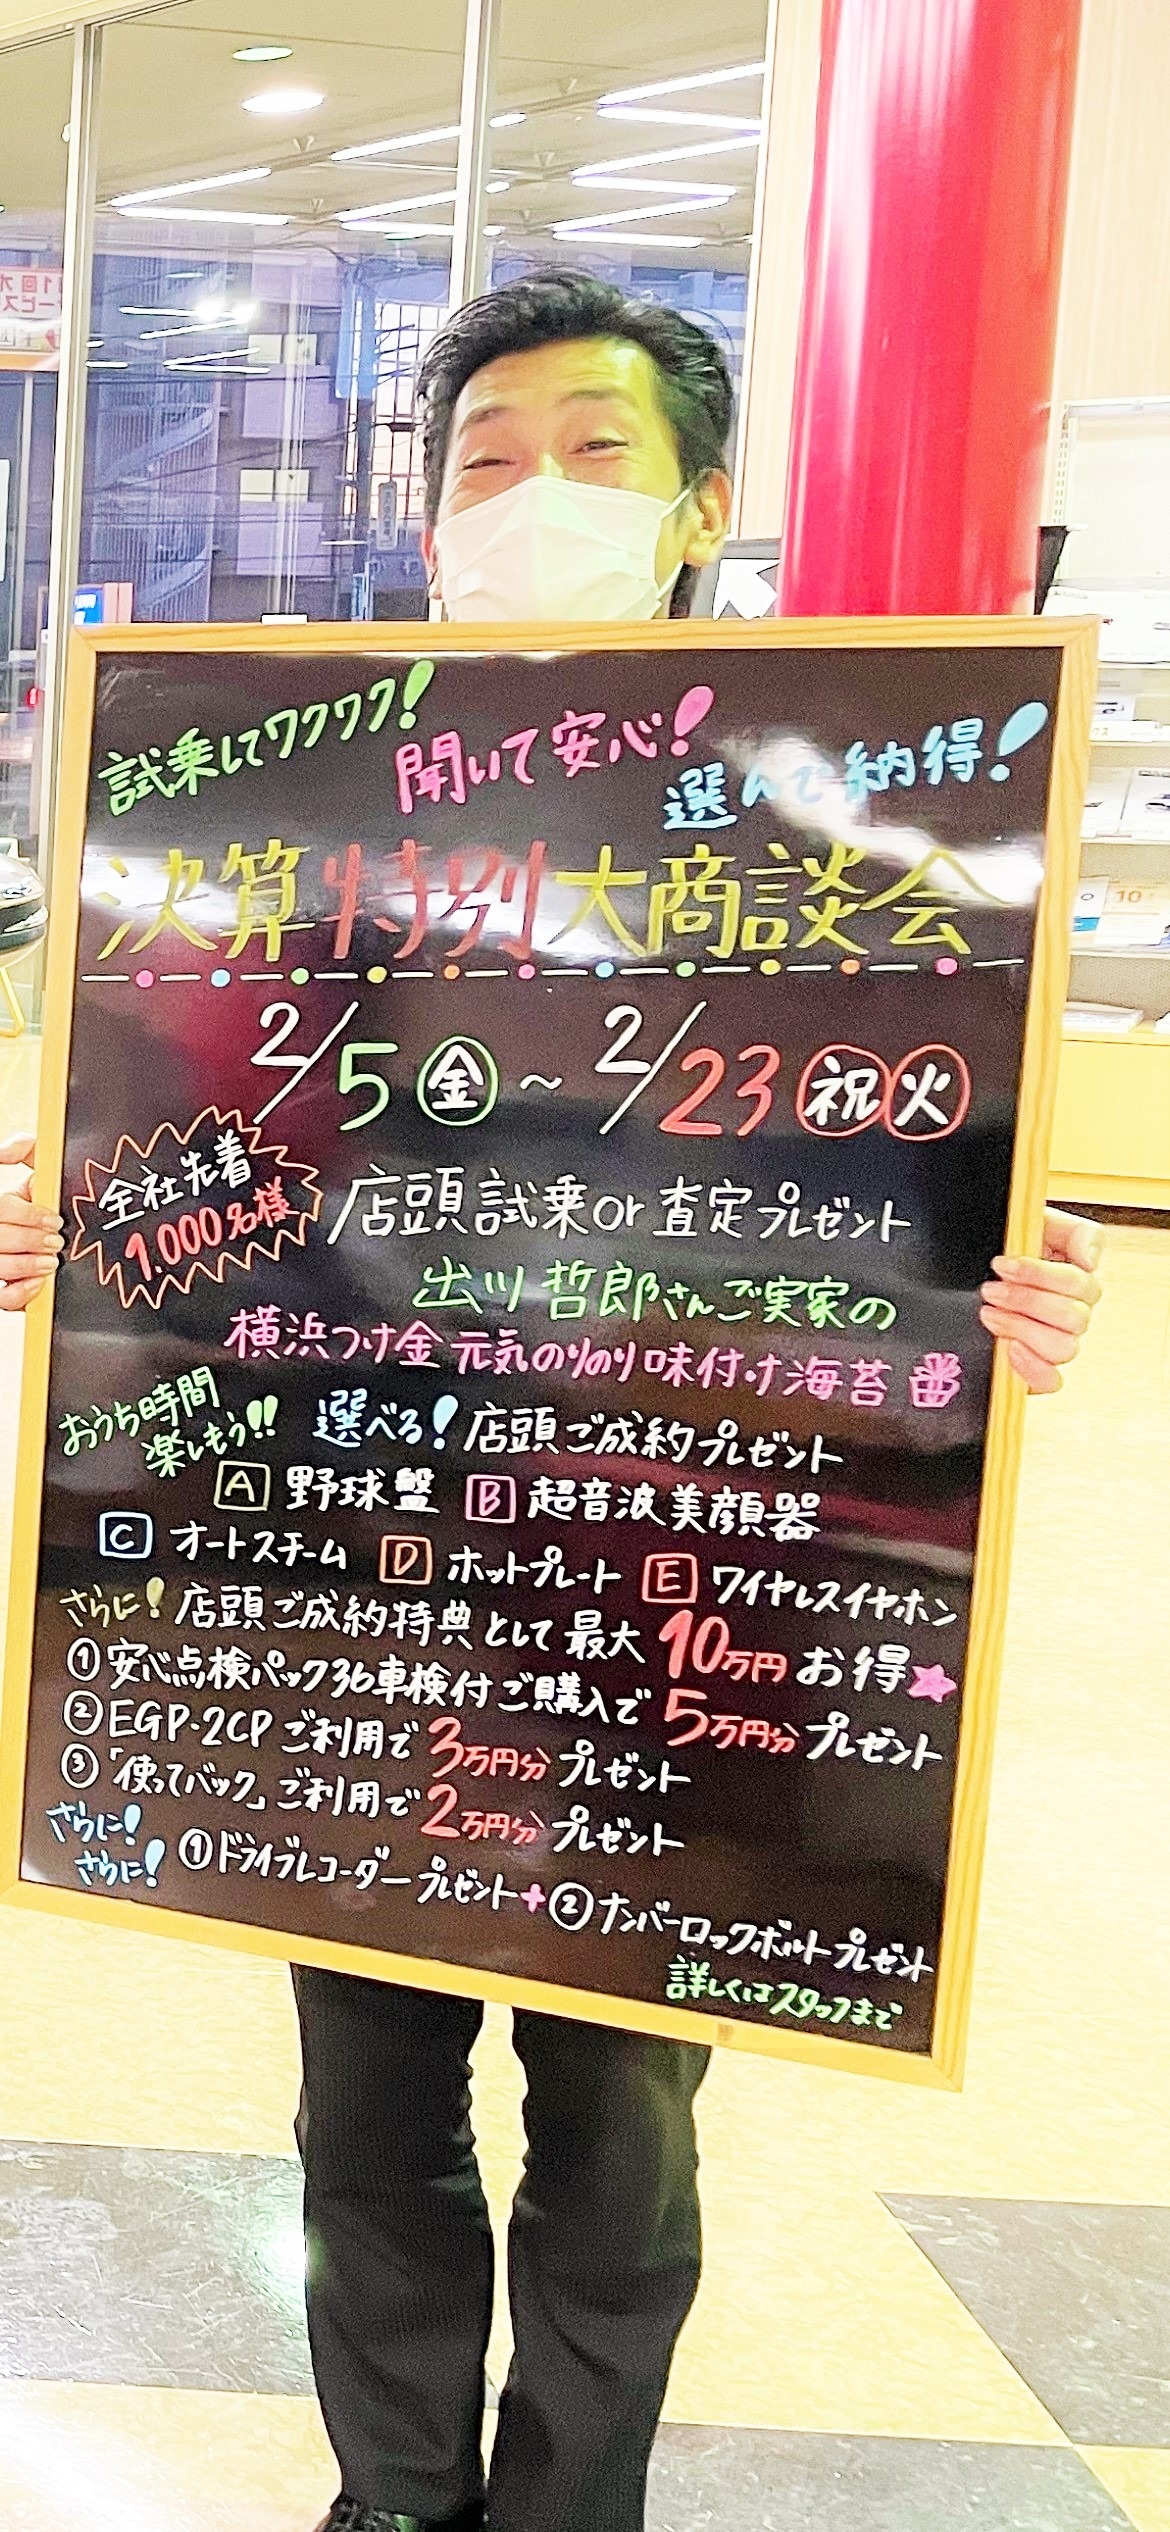 試乗してワクワク!
聞いて安心!
選んで納得!
決算特別大商談会
2/5㊎~2/23㊗㊋
全社先着
1.000名様
店頭試乗or査定プレゼント
出川哲郎さんご実家の
横浜つけ金元気のりのり味付け海苔
おうち時間
楽しもう!!
選べる!店頭ご成約プレゼント
A 野球盤 B 超音波美顔器
C オートスチーム D ホットプレート E ワイヤレスイヤホン
さらに!店頭ご成約特典として最大10万円お得
①安心点検パック36車検付ご購入で5万円分プレゼント
②EGP・2CPご利用で3万円分プレゼント
③「使ってバック」ご利用で2万円分プレゼント
さらに!
さらに!
①ドライブレコーダープレゼント+②ナンバーロックボルトプレゼント
詳しくはスタッフまで